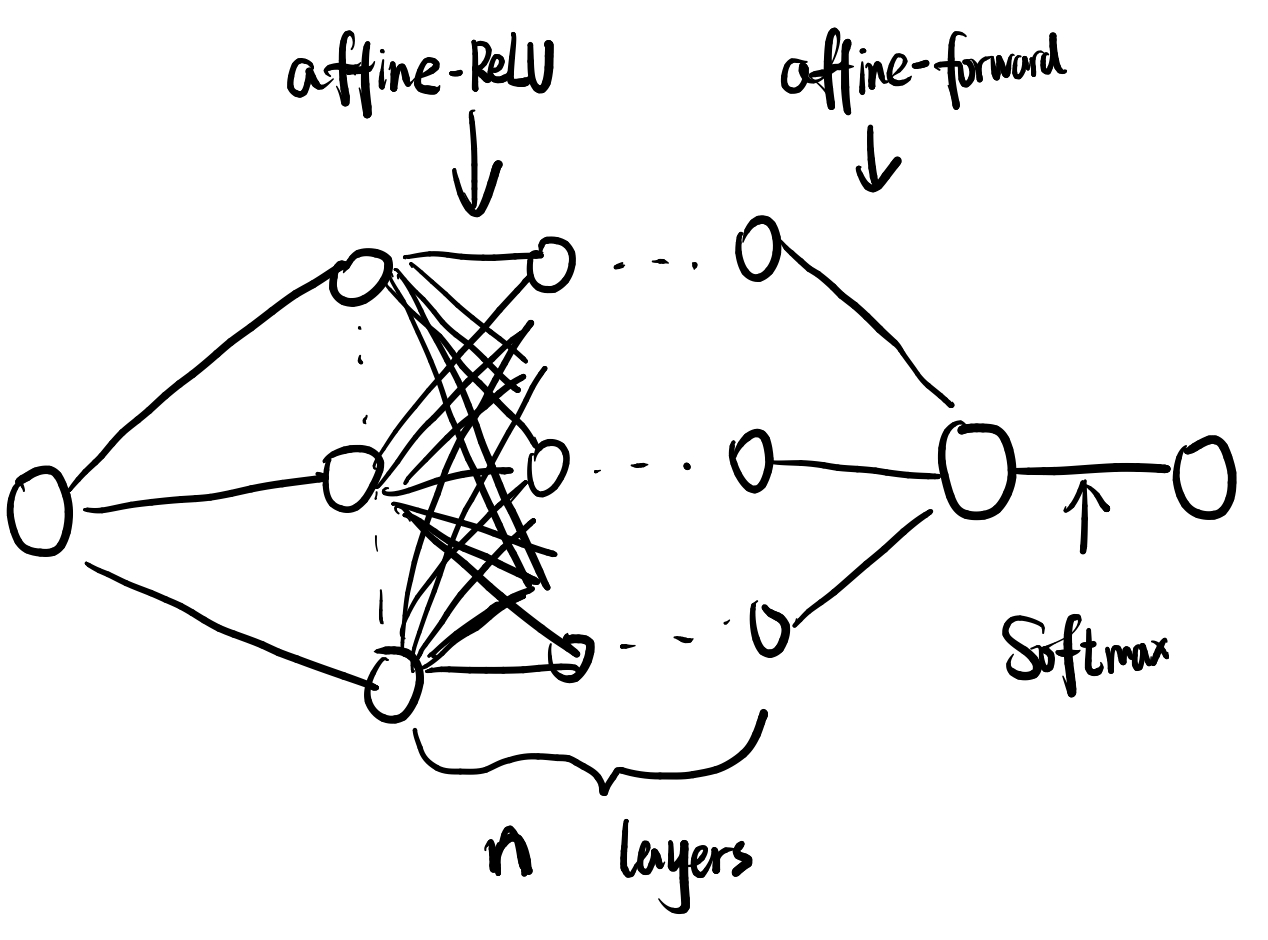 affine-ReLU
affine-forward
Softmax
n layers